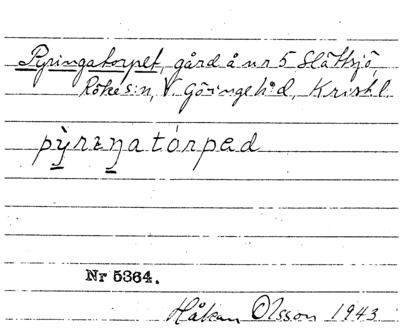 Pyringatorpet, gård å nr 5 Slättsjö,
Röke s:n, V. Göinge h:d, Krist. l.
pỳrıŋatórpəd
Nr 5364.
Håkan Olsson 1943